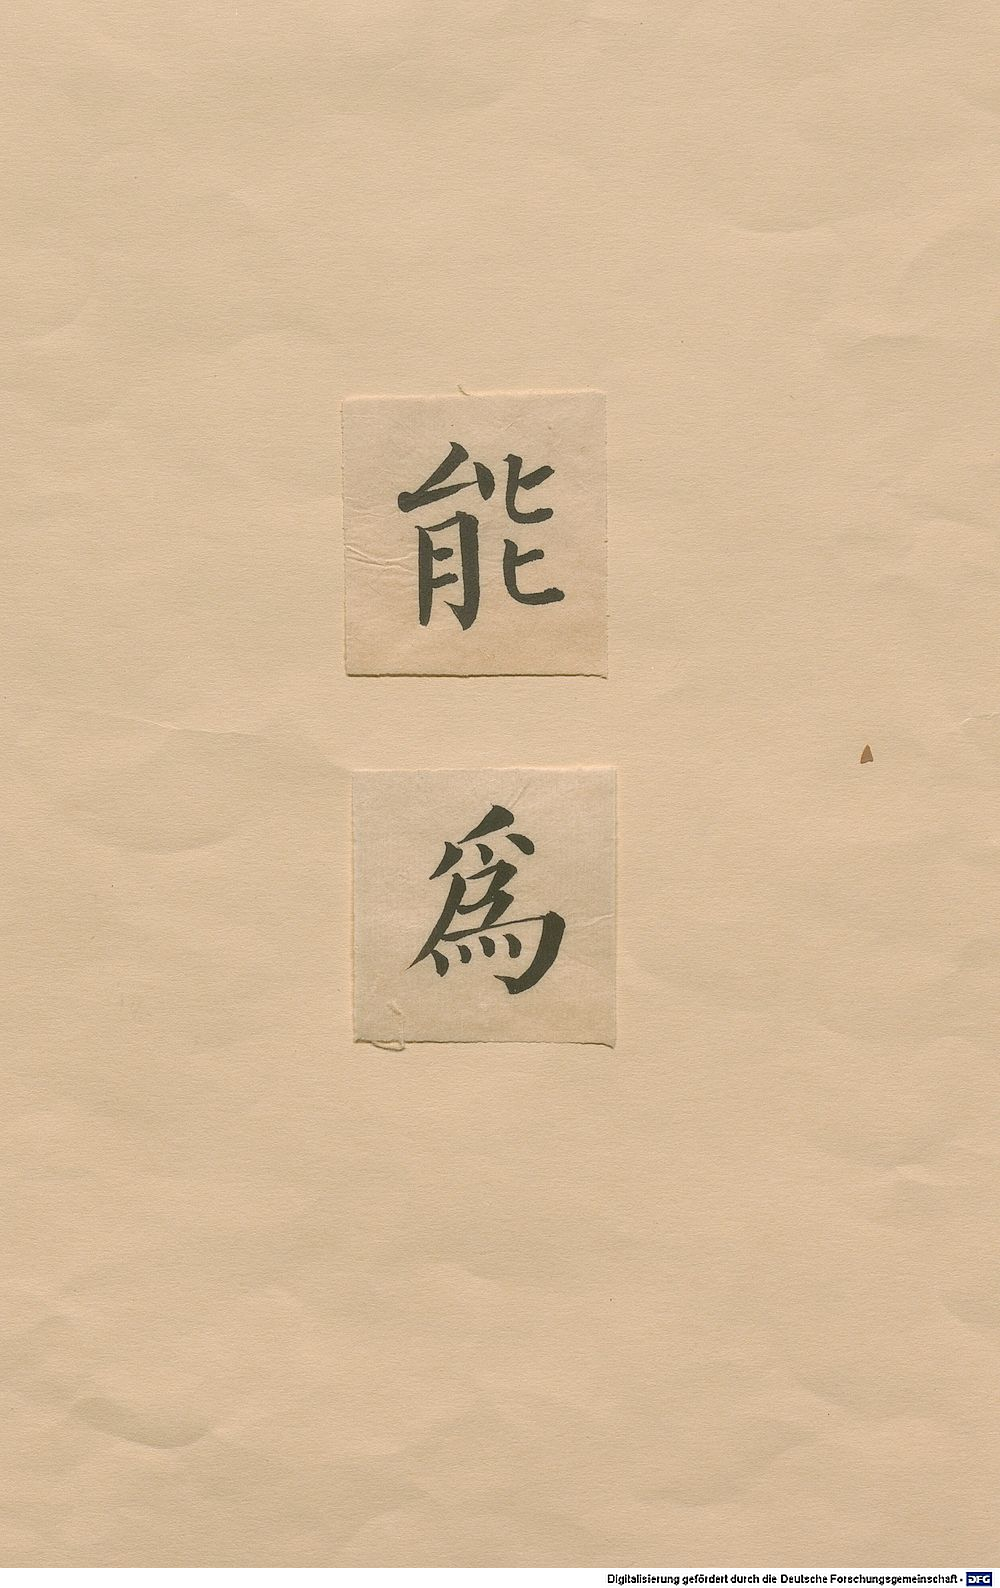 能
爲
Digitalisierung gefördert durch die Deutsche Forschungsgemeinschaft - DFG